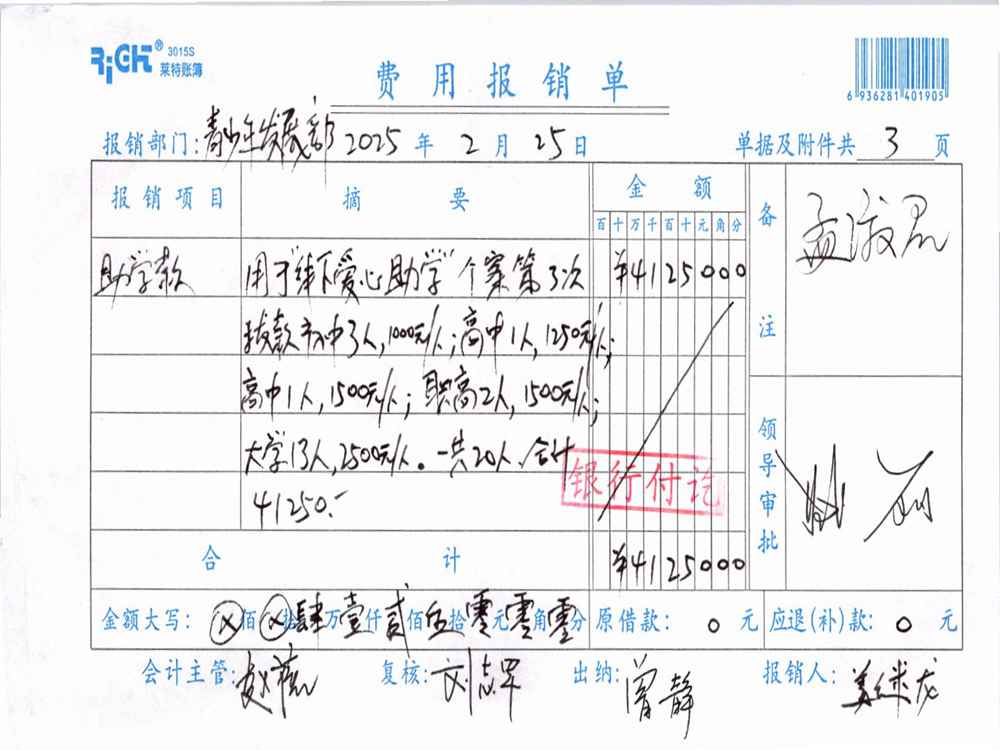 RiCH® 3015S
莱特账簿
费用报销单
6 936281 401905
报销部门:青少年发展部 2025 年 2 月 25 日 单据及附件共 3 页
报销项目 摘要 金额 备注
百十万千百十元角分
助学款 用于"线下爱心助学"个案第3次 ¥4125000
拨款初中3人,1000元/人;高中1人,1250元/人;
高中1人,1500元/人;职高2人,1500元/人;
大学13人,2500元/人。一共20人、合计
41250.-
银行付讫
领导审批
合计 ¥4125000
金额大写: ⊗佰⊗拾肆万壹仟贰佰伍拾零元零角零分 原借款: 0 元 应退(补)款: 0 元
会计主管: 复核: 出纳:曾静 报销人: